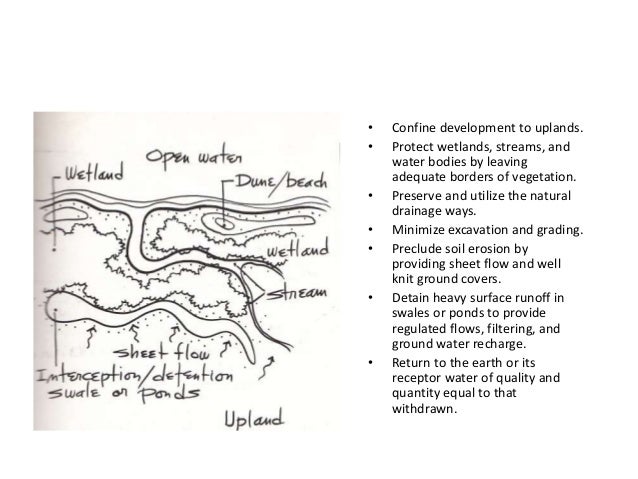 Open water
Wetland
Dune/beach
wetland
stream
sheet flow
Interception/detention
swale or ponds
Upland
• Confine development to uplands.
• Protect wetlands, streams, and
water bodies by leaving
adequate borders of vegetation.
• Preserve and utilize the natural
drainage ways.
• Minimize excavation and grading.
• Preclude soil erosion by
providing sheet flow and well
knit ground covers.
• Detain heavy surface runoff in
swales or ponds to provide
regulated flows, filtering, and
ground water recharge.
• Return to the earth or its
receptor water of quality and
quantity equal to that
withdrawn.